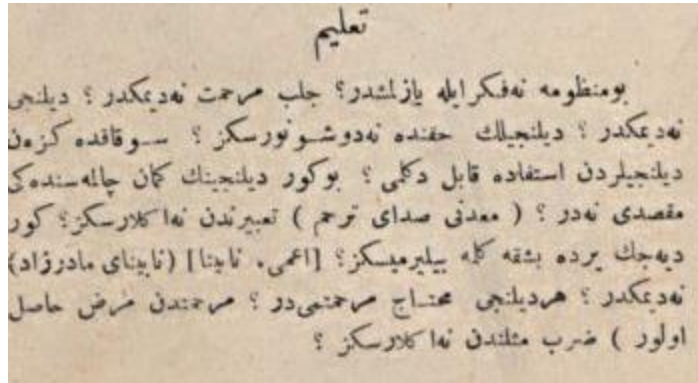 تعلیم
بومنظومه نه‌فکر ایله یازلمشدر؟ جلب مرحمت نه‌دیمکدر؟ دیلنجی
نه‌دیمکدر؟ دیلنجیلك حقنده نه‌دوشـونورسکز؟ سـوقاقده کزه‌ن
دیلنجیلردن استفاده قابل دکلمی؟ بوکور دیلنجینك کمان چالمه‌سنده‌کی
مقصدی نه‌در؟ (معدنی صدای ترحم) تعبیرندن نه‌اکلارسکز؟ کور
دیه‌جك یرده بشقه کله بیلیرمیسکز؟ [اعمی، نابینا] (نابینای مادرزاد)
نه‌دیمکدر؟ هردیلنجی محتـاج مرحمتمی‌در؟ مرحمتدن مرض حاصل
اولور) ضرب مثلندن نه‌اکلارسکز؟